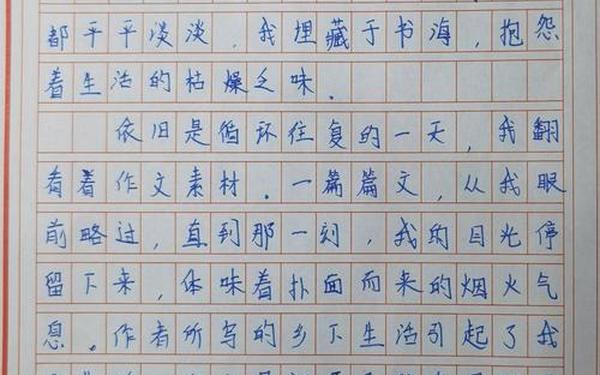 都平平淡淡，我埋藏于书海，抱怨
着生活的枯燥乏味．
依旧是循环往复的一天，我翻
看着作文素材．一篇篇文，从我眼
前略过，直到那一刻，我的目光停
留下来，体味着扑面而来的烟火气
息．作者所写的乡下生活引起了我